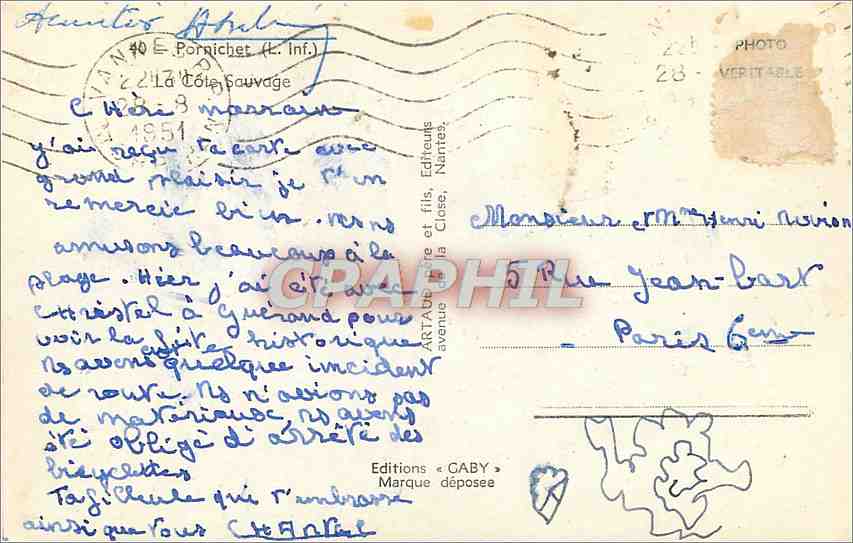 Amitiés
40 - Pornichet (L. Inf.)
La Côte Sauvage
22H30
28-8
1951
CHère marraine
y'ai reçu ta carte avec
grand plaisir je t'en
remercie bien. ns ns
amusons beaucoup à la
plage. Hier j'ai été avec
CHRISTEL à Guérand pour
voir la fête historique
ns avons eut quelque incident
de route. Ns n'avions pas
de matérieaux, ns avons
été obligé d'arrêté des
bicyclettes
Ta filleule qui t'embrasse
ainsi que vous CHANTAL
ARTAUD père et fils, Editeurs
avenue de la Close, Nantes.
Editions « GABY »
Marque déposée
PHOTO
VERITABLE
22H
28-
Monsieur et Mme Henri
5 Rue Jean-bart
Paris 6em
CPAPHIL